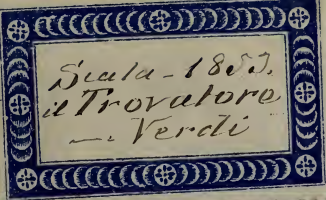 Scala - 1853.
il Trovatore
— Verdi